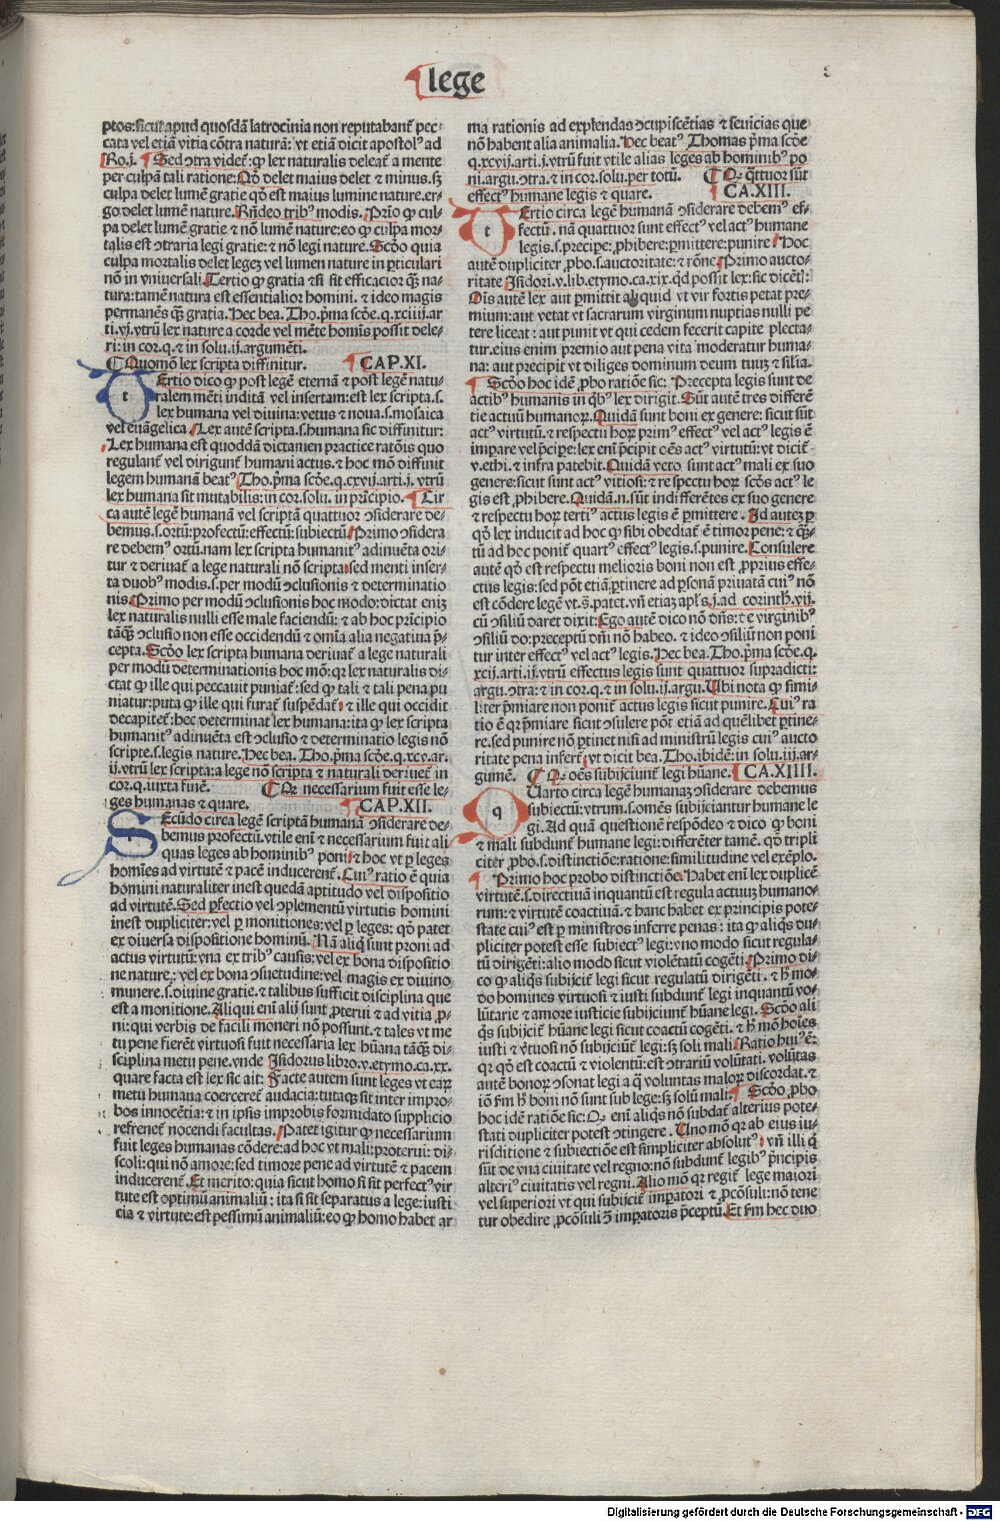 lege
ptos:sicut apud quosdā latrocinia non reputabant᷑ pec-
cata vel etiā vitia cōtra naturā: vt etiā dicit apostolꝰ ad
Ro.j. Sed ↄtra videt᷑: ꝙ lex naturalis deleat᷑ a mente
per culpā tali ratione: Qd̄ delet maius delet ⁊ minus.sꝫ
culpa delet lumē gratie qd̄ est maius lumine nature.er-
go delet lumē nature. Rn̄deo tribꝰ modis. Prīo ꝙ cul-
pa delet lumē gratie ⁊ nō lumē nature:eo ꝙ culpa mor-
talis est ↄtraria legi gratie: ⁊ nō legi nature. Scd̄o quia
culpa mortalis delet legeꝫ vel lumen nature in ꝑticulari
nō in vniuersali. Tertio ꝙ gratia ⁊si sit efficacior q̄ꝫ na-
tura:tamē natura est essentialior homini. ⁊ ideo magis
permanēs q̄ꝫ gratia. Hec bea. Tho. p̄ma scd̄e.q.xciiij.ar
ti.vj.vtrū lex nature a corde vel mēte homīs possit dele-
ri: in cor.q.⁊ in solu.ij.argumēti.
Quomō lex scripta diffinitur. CAP.XI.
tErtio dico ꝙ post legē eternā ⁊ post legē natu-
ralem mēti inditā vel insertam:est lex scripta.s.
lex humana vel diuina: vetus ⁊ noua.s.mosaica
vel euāgelica. Lex autē scripta.s.humana sic diffinitur:
Lex humana est quoddā dictamen practice ratōis quo
regulant᷑ vel dirigunt᷑ humani actus.⁊ hoc mō diffinit
legem humanā beatꝰ Tho. p̄ma scd̄e.q.cxvij.arti.j. vtrū
lex humana sit mutabilis: in cor.solu. in prīcipio. Cir
ca autē legē humanā vel scriptā quattuor ↄsiderare de-
bemus.s.ortū:profectū:effectū:subiectū. Primo ↄsidera
re debemꝰ ortū.nam lex scripta humanitꝰ adinuēta ori-
tur ⁊ deriuat᷑ a lege naturali nō scripta:sed menti inser-
ta duobꝰ modis.s.per modū ↄclusionis ⁊ determinatio
nis. Primo per modū ↄclusionis hoc modo:dictat eniꝫ
lex naturalis nulli esse male faciendū: ⁊ ab hoc prīcipio
tāqꝫ ↄclusio non esse occidendū ⁊ om̄ia alia negatiua p̄-
cepta. Scd̄o lex scripta humana deriuat᷑ a lege naturali
per modū determinationis hoc mō:qꝛ lex naturalis di-
ctat ꝙ ille qui peccauit puniat᷑:sed ꝙ tali ⁊ tali pena pu
niatur:puta ꝙ ille qui furat᷑ suspēdat᷑: ⁊ ille qui occidit
decapitet᷑:hec determinat lex humana:ita ꝙ lex scripta
humanitꝰ adinuēta est ↄclusio ⁊ determinatio legis nō
scripte.s.legis nature. Hec bea. Tho. p̄ma scd̄e.q.xcv.ar.
ij.vtrū lex scripta:a lege nō scripta ⁊ naturali deriuet᷑ in
cor.q.iuxta finē. Qꝛ necessarium fuit esse le-
ges humanas ⁊ quare. CAP.XII.
SEcūdo circa legē scriptā humanā ↄsiderare de-
bemus profectū.vtile enī ⁊ necessarium fuit ali
quas leges ab hominibꝰ poni: ⁊ hoc vt ꝑ leges
homīes ad virtutē ⁊ pacē inducerent᷑. Cuiꝰ ratio ē quia
homini naturaliter inest quedā aptitudo vel dispositio
ad virtutē. Sed ꝑfectio vel ↄplementū virtutis homini
inest dupliciter:vel ꝑ monitiones:vel ꝑ leges: qd̄ patet
ex diuersa dispositione hominū. Nā aliq̄ sunt proni ad
actus virtutū:vna ex tribꝰ causis:vel ex bona dispositio
ne nature.: vel ex bona ↄsuetudine:vel magis ex diuino
munere.s.diuine gratie.⁊ talibus sufficit disciplina que
est a monitione. Aliqui enī alij sunt ꝓterui ⁊ ad vitia ꝓ-
ni:qui verbis de facili moneri nō possunt.⁊ tales vt me
tu pene fierēt virtuosi fuit necessaria lex hūana tāqꝫ di-
sciplina metu pene.vnde Isidorus libro.v.etymo.ca.xx.
quare facta est lex sic ait: Facte autem sunt leges vt eaꝝ
metu humana coerceret᷑ audacia:tutaqꝫ sit inter impro-
bos innocētia:⁊ in ipsis improbis formidato supplicio
refrenet᷑ nocendi facultas. Patet igitur ꝙ necessarium
fuit leges humanas cōdere:ad hoc vt mali:proterui: di-
scoli:qui nō amore:sed timore pene ad virtutē ⁊ pacem
inducerent᷑. Et merito:quia sicut homo si sit perfectꝰ vir
tute est optimū animaliū: ita si sit separatus a lege:iusti
cia ⁊ virtute:est pessimū animaliū:eo ꝙ homo habet ar
ma rationis ad explendas ↄcupiscētias ⁊ seuicias que
nō habent alia animalia. Hec beatꝰ Thomas p̄ma scd̄e
q.xcvij.arti.j.vtrū fuit vtile alias leges ab hominibꝰ po
ni.argu.ↄtra.⁊ in cor.solu.per totū. Qꝛ q̄ttuor sūt
effectꝰ humane legis ⁊ quare. CA.XIII.
tErtio circa legē humanā ↄsiderare debemꝰ ef-
fectū. nā quattuor sunt effectꝰ vel actꝰ humane
legis.s.precipe:ꝓhibere:ꝑmittere:punire Hoc
autē dupliciter ꝓbo.s.auctoritate:⁊ rōne. Primo aucto-
ritate Isidori.v.lib.etymo.ca.xix.qd̄ possit lex:sic dicēt᷑:
Oīs autē lex aut ꝑmittit aliquid vt vir fortis petat pre-
mium:aut vetat vt sacrarum virginum nuptias nulli pe
tere liceat: aut punit vt qui cedem fecerit capite plecta-
tur.eius enim premio aut pena vita moderatur huma-
na: aut precipit vt diliges dominum deum tuuꝫ ⁊ silia.
Scd̄o hoc idē ꝓbo ratiōe sic: Precepta legis sunt de
actibꝰ humanis in q̄bꝰ lex dirigit. Sūt autē tres differē
tie actuū humanoꝝ. Quidā sunt boni ex genere: sicut sūt
actꝰ virtutū.⁊ respectu hoꝝ primꝰ effectꝰ vel actꝰ legis ē
impare vel p̄cipe:lex enī p̄cipit oēs actꝰ virtutū:vt dicit᷑
v.ethi.⁊ infra patebit. Quidā vero sunt actꝰ mali ex suo
genere:sicut sunt actꝰ vitiosi:⁊ respectu hoꝝ scd̄s actꝰ le
gis est ꝓhibere. Quidā.n.sūt indifferētes ex suo genere
⁊ respectu hoꝝ tertiꝰ actus legis ē ꝑmittere. Id auteꝫ ꝑ
qd̄ lex inducit ad hoc ꝙ sibi obediat᷑ ē timor pene:⁊ q̄ꝫ-
tū ad hoc ponit᷑ quartꝰ effectꝰ legis.s.punire. Consulere
autē qd̄ est respectu melioris boni non est ꝓprius effe-
ctus legis:sed pōt etiā ꝑtinere ad ꝑsonā priuatā cuiꝰ nō
est cōdere legē vt.s.patet.vn̄ etiaꝫ apl̄s.j.ad corinth.vij.
cū ↄsiliū daret dixit: Ego autē dico nō dn̄s: de virginibꝰ
ↄsiliū do:preceptū dn̄i nō habeo. ⁊ ideo ↄsiliū non poni
tur inter effectꝰ vel actꝰ legis. Hec bea. Tho. p̄ma scd̄e.q.
xcij.arti.ij.vtrū effectus legis sunt quattuor supradicti:
argu.ↄtra: ⁊ in cor.q.⁊ in solu.ij.argu. Ubi nota ꝙ simi-
liter p̄miare non ponit᷑ actus legis sicut punire. Cuiꝰ ra
tio ē qꝛ p̄miare sicut ↄsulere pōt etiā ad quēlibet ꝑtine-
re.sed punire nō ꝑtinet nisi ad ministrū legis cuiꝰ aucto
ritate pena infert᷑:vt dicit bea. Tho.ibidē:in solu.iij.ar-
gumē. Qꝛ oēs subijciunt᷑ legi hūane. CA.XIIII.
qUarto circa legē humanaꝫ ↄsiderare debemus
subiectū:vtrum.s.omēs subijciantur humane le
gi. Ad quā questionē respōdeo ⁊ dico ꝙ boni
⁊ mali subdunt᷑ humane legi:differēter tamē. qd̄ tripli
citer ꝓbo.s.distinctiōe:ratione:similitudine vel exēplo.
Primo hoc probo distinctiōe. Habet enī lex duplicē
virtutē.s.directiuā inquantū est regula actuuꝫ humano-
rum:⁊ virtutē coactiuā.⁊ hanc habet ex principis pote-
state cuiꝰ est ꝑ ministros inferre penas: ita ꝙ aliq̄s du-
pliciter potest esse subiectꝰ legi:vno modo sicut regula-
tū dirigēti:alio modo sicut violētatū cogēti. Primo di-
co ꝙ aliq̄s subijcit᷑ legi sicut regulatū dirigēti.⁊ hͦ mo-
do homines virtuosi ⁊ iusti subdunt᷑ legi inquantū vo-
lūtarie ⁊ amore iusticie subijciunt᷑ hūane legi. Scd̄o ali
q̄s subijcit᷑ hūane legi sicut coactū cogēti.⁊ hͦ mō hoīes
iusti ⁊ v̄tuosi nō subijciūt᷑ legi:sꝫ soli mali. Ratio huiꝰ ē:
qꝛ qd̄ est coactū ⁊ violentū:est ↄtrariū volūtati. volūtas
autē bonoꝝ ↄsonat legi a q̄ voluntas maloꝝ discordat.⁊
iō fm̄ hͦ boni nō sunt sub lege:sꝫ solū mali. Scd̄o ꝓbo
hoc idē ratiōe sic: Qꝛ enī aliq̄s nō subdat᷑ alterius pote-
stati dupliciter potest ↄtingere. Uno mō qꝛ ab eius iu-
risditione ⁊ subiectiōe est simpliciter absolutꝰ: vn̄ illi q̄
sūt de vna ciuitate vel regno:nō subdunt᷑ legibꝰ p̄ncipis
alteriꝰ ciuitatis vel regni. Alio mō qꝛ regit᷑ lege maiori
vel superiori vt qui subijcit᷑ imꝑatori ⁊ ꝓcōsuli:nō tene
tur obedire ꝓcōsuli ↄ̄ imꝑatoris p̄ceptū. Et fm̄ hec duo
Digitalisierung gefördert durch die Deutsche Forschungsgemeinschaft - DFG